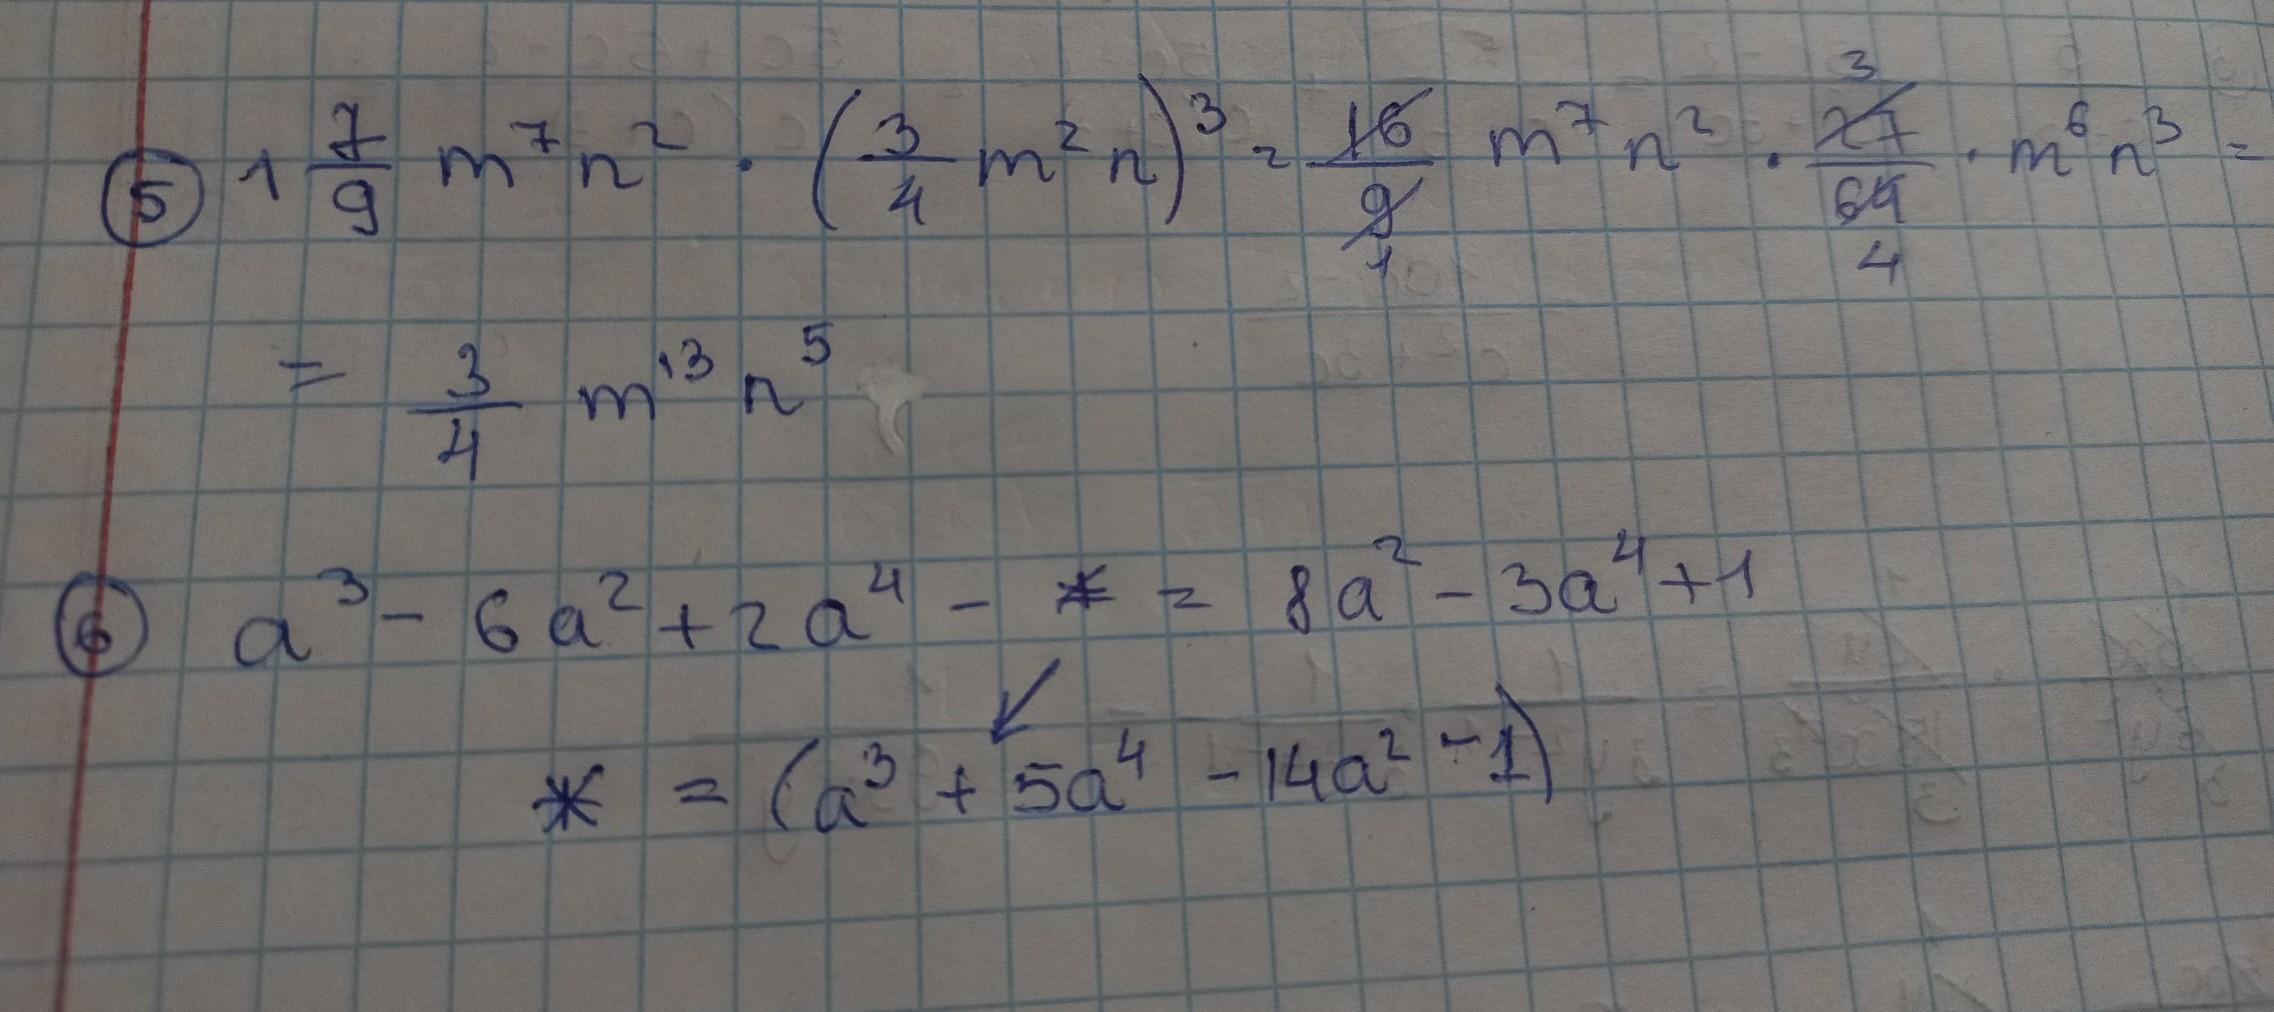 ⑤ 1 7/9 m⁷n² · (3/4 m²n)³ = 16/9 1 m⁷n² · 3 27/64 4 · m⁶n³ =
= 3/4 m¹³n⁵
⑥ a³ - 6a² + 2a⁴ - * = 8a² - 3a⁴ + 1
* = (a³ + 5a⁴ - 14a² - 1)